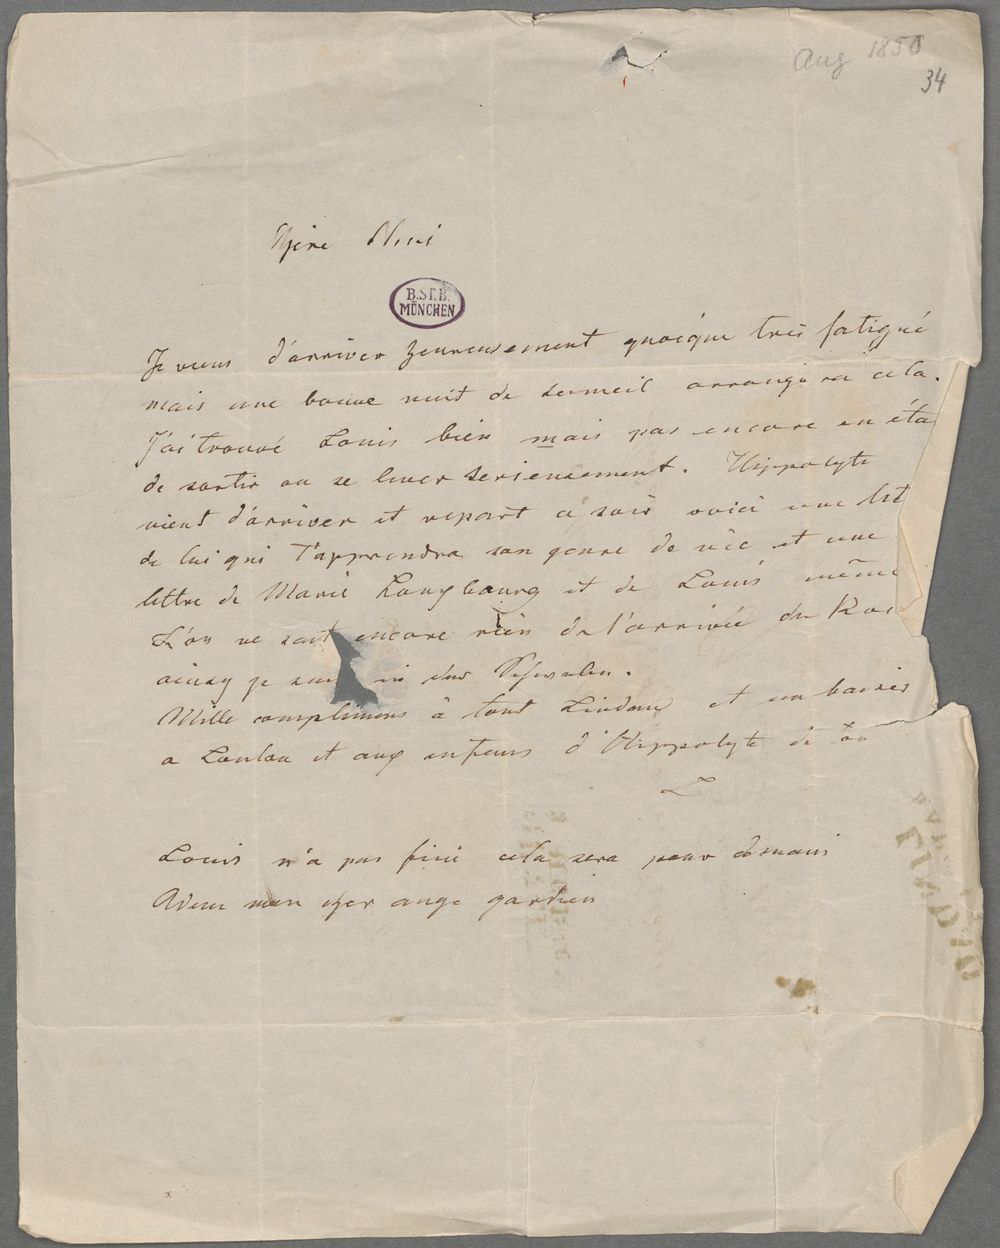 Aug 1850
34
Chère Nini
B.ST.B.
MÜNCHEN
Je viens d'arriver heureusement quoique très fatigué
mais une bonne nuit de sommeil arrangera cela.
J'ai trouvé Louis bien mais pas encore en éta
de sortir ou se lever serieusement. Hippolyte
vient d'arriver et repart ce soir voici une let
de lui qui t'apprendra son genre de vie et une
lettre de Marie et de Louis même
L'on ne sait encore rien de l'arrivée du Roi
ainsy je
Mille complimens à tout Lindau et un baiser
a Loulou et aux enfans d'Hippolyte de to
L
Louis n'a pas fini cela sera pour demain
Adieu mon cher ange gardien